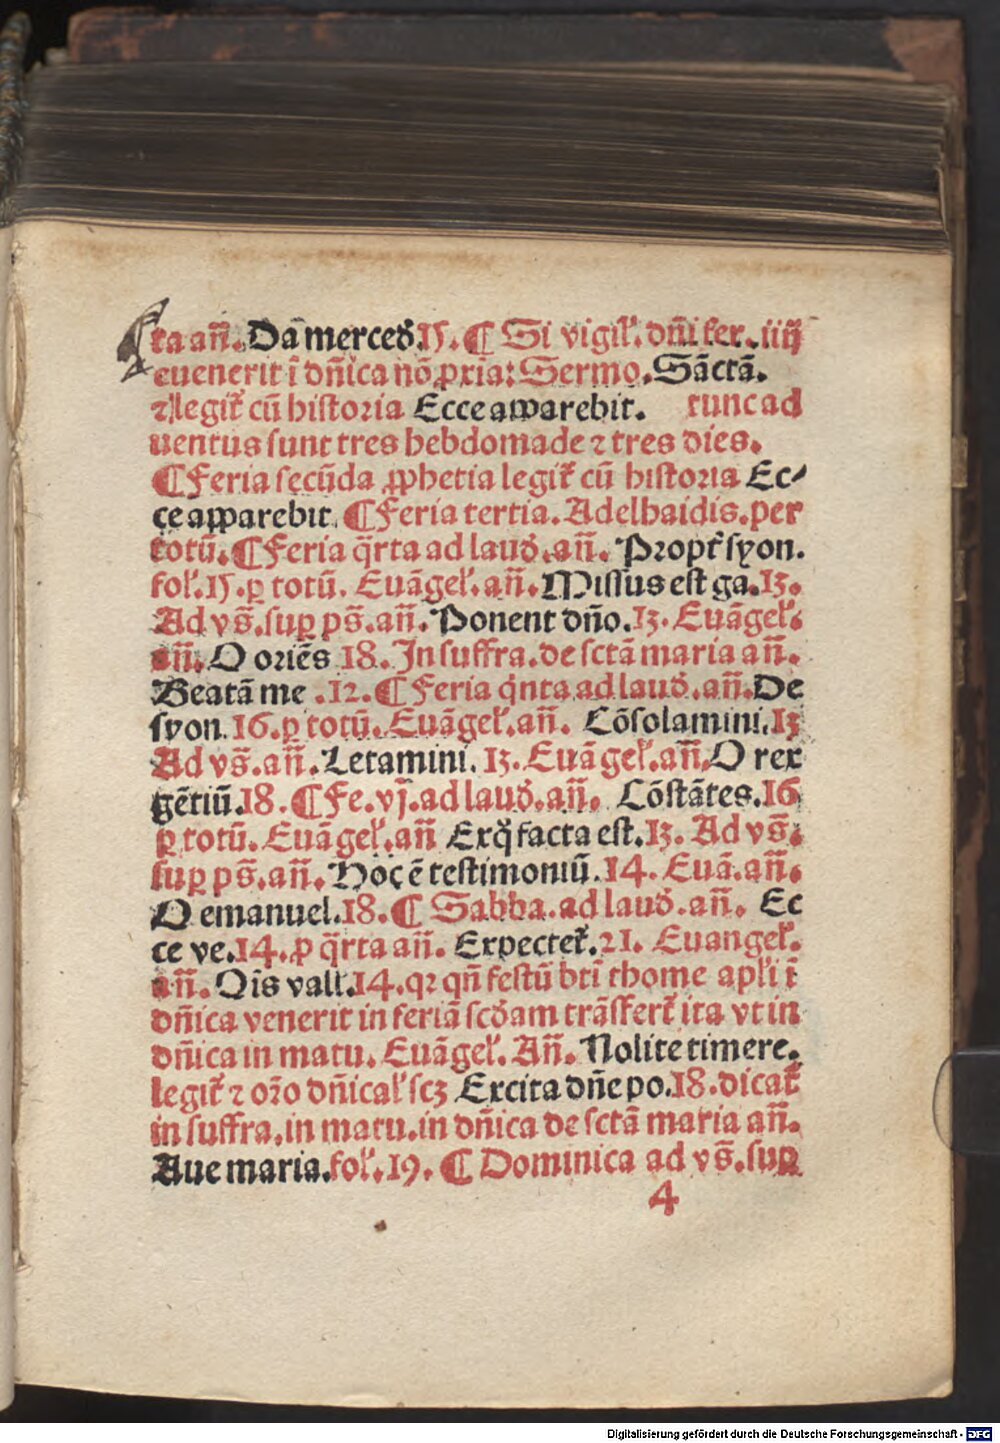 ta añ. Da merced̛. 15. ¶ Si vigil̛. dñi fer. iiij
euenerit ī dñica nō ꝓxīa: Sermo. Sāctā.
⁊ legit̛ cū historia Ecce apparebit. tunc ad
uentus sunt tres hebdomade ⁊ tres dies.
¶ Feria secūda ꝓphetia legit̛ cū historia Ec⸗
ce apparebit. ¶ Feria tertia. Adelhaidis. per
totū. ¶ Feria q̄rta ad laud̛. añ. Propt̛ syon.
fol̛. 15. ꝑ totū. Euāgel̛. añ. Missus est ga. 13.
Ad vs̄. suꝑ ps̄. añ. Ponent dño. 13. Euāgel̛.
añ. O oriēs 18. In suffra. de sctā maria añ.
Beatā me . 12. ¶ Feria q̇nta ad laud̛. añ. De
syon. 16. ꝑ totū. Euāgel̛. añ. Cōsolamini. 13
Ad vs̄. añ. Letamini. 13. Euāgel̛. añ. O rex
gētiū. 18. ¶ Fe. vj. ad laud̛. añ. Cōstātes. 16
ꝑ totū. Euāgel̛. añ Ex q̊ facta est. 13. Ad vs̄.
suꝑ ps̄. añ. Hoc ē testimoniū. 14. Euā. añ.
O emanuel. 18. ¶ Sabba. ad laud̛. añ. Ec
ce ve. 14. ꝓ q̄rta añ. Expectet̛. 21. Euangel̛.
añ. Oīs vall̛. 14. qꝛ qñ festū bti thome apl̛i ī
dñica venerit in feriā scd̛am trāsfert̛ ita vt in
dñica in matu. Euāgel̛. Añ. Nolite timere.
legit̛ ⁊ oꝛo dñical̛ scꝫ Excita dñe po. 18. dicat̛
in suffra. in matu. in dñica de sctā maria añ.
Aue maria. fol̛. 19. ¶ Dominica ad vs̄. suꝑ
4
Digitalisierung gefördert durch die Deutsche Forschungsgemeinschaft - DFG